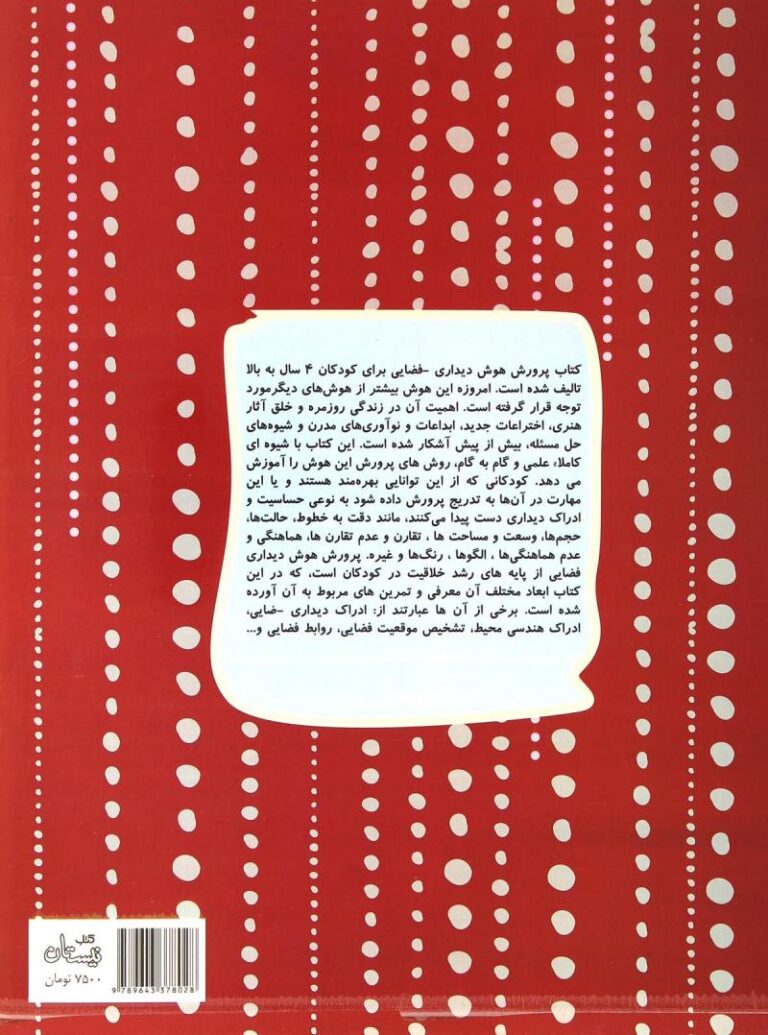 کتاب پرورش هوش دیداری –فضایی برای کودکان ۴ سال به بالا
تالیف شده است. امروزه این هوش بیشتر از هوش‌های دیگرمورد
توجه قرار گرفته است. اهمیت آن در زندگی روزمره و خلق آثار
هنری، اختراعات جدید، ابداعات و نوآوری‌های مدرن و شیوه‌های
حل مسئله، بیش از پیش آشکار شده است. این کتاب با شیوه ای
کاملاء علمی و گام به گام، روش های پرورش این هوش را آموزش
می دهد. کودکانی که از این توانایی بهره‌مند هستند و یا این
مهارت در آن‌ها به تدریج پرورش داده شود به نوعی حساسیت و
ادراک دیداری دست پیدا می‌کنند، مانند دقت به خطوط، حالت‌ها،
حجم‌ها، وسعت و مساحت ها ، تقارن و عدم تقارن ها، هماهنگی و
عدم هماهنگی‌ها ، الگوها ، رنگ‌ها و غیره. پرورش هوش دیداری
فضایی از پایه های رشد خلاقیت در کودکان است، که در این
کتاب ابعاد مختلف آن معرفی و تمرین های مربوط به آن آورده
شده است. برخی از آن ها عبارتند از: ادراک دیداری –ضایی،
ادراک هندسی محیط، تشخیص موقعیت فضایی، روابط فضایی و...
کتاب
نیستان
۷۵۰۰ تومان
9 789643 378028